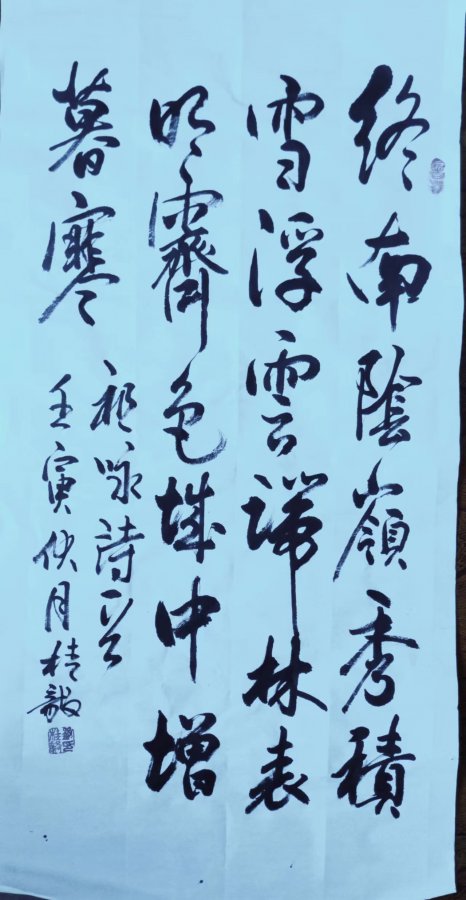 終南陰嶺秀積
雪浮雲端林表
明霽色城中增
暮寒
祖咏詩一首
壬寅伏月桂毅